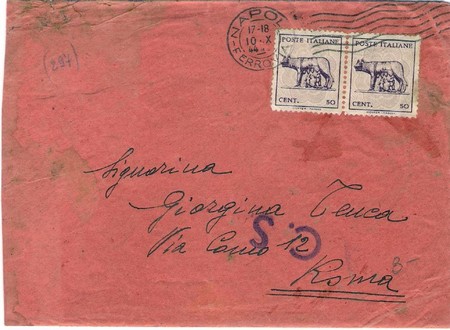 (297)
NAPOLI
17-18
10·X
44
FERROV
POSTE ITALIANE
CENT. 50
POSTE ITALIANE
CENT. 50
Signorina
Giorgina Tenca
Via Como 12
C.S
Roma